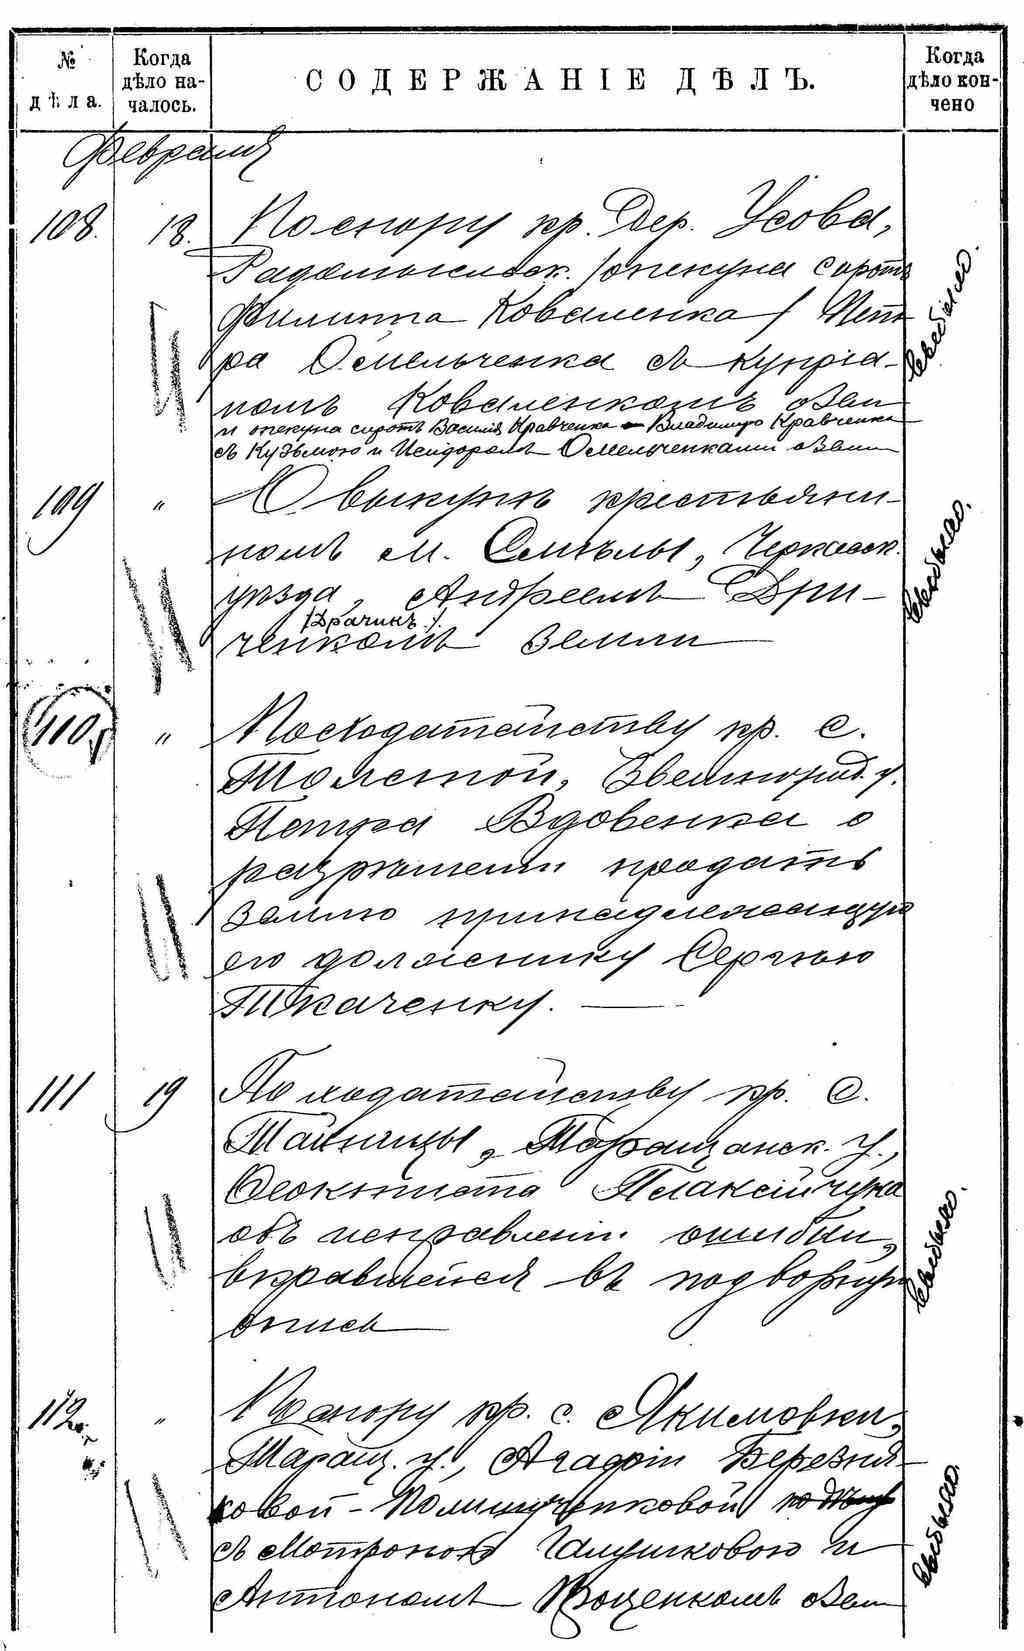 № дѣла.
Когда дѣло началось.
СОДЕРЖАНІЕ ДѢЛЪ.
Когда дѣло кончено
Февраля
108. 18. По спору кр. дер. Усова,
Радомысльск. /опекуна сиротъ
Филиппа Коваленка/ Пет-
ра Омельченка съ Купріа-
номъ Коваленкомъ о зем
и опекуна сиротъ Василія Кравченка Владиміро Кравченка
съ Кузьмою и Исидоромъ Омельченками о земл
выбыло.
109 " О выкупѣ крестьяни-
номъ м. Смѣлы, Черкасск.
уѣзда, Андреемъ Дри-
/Драчинъ./
ченкомъ земли
выбыло.
110. " По ходатайству кр. с.
Толстой, Звенигород. у.
Петра Вдовенка о
разрѣшеніи продать
землю принадлежащую
его должнику Сергѣю
Ткаченку.
111 19 По ходатайству кр. с.
Тайницы, Таращанск. у.,
Феоктиста Плаксійчука
объ исправленіи ошибки,
вкравшейся въ подворную
опись
выбыло.
112. " По спору кр. с. Якимовки,
Таращ. у., Агафіи Березня-
ковой-Полищученковой
съ Мотроною Галушковою и
Антономъ Воценкомъ о зем
выбыло.